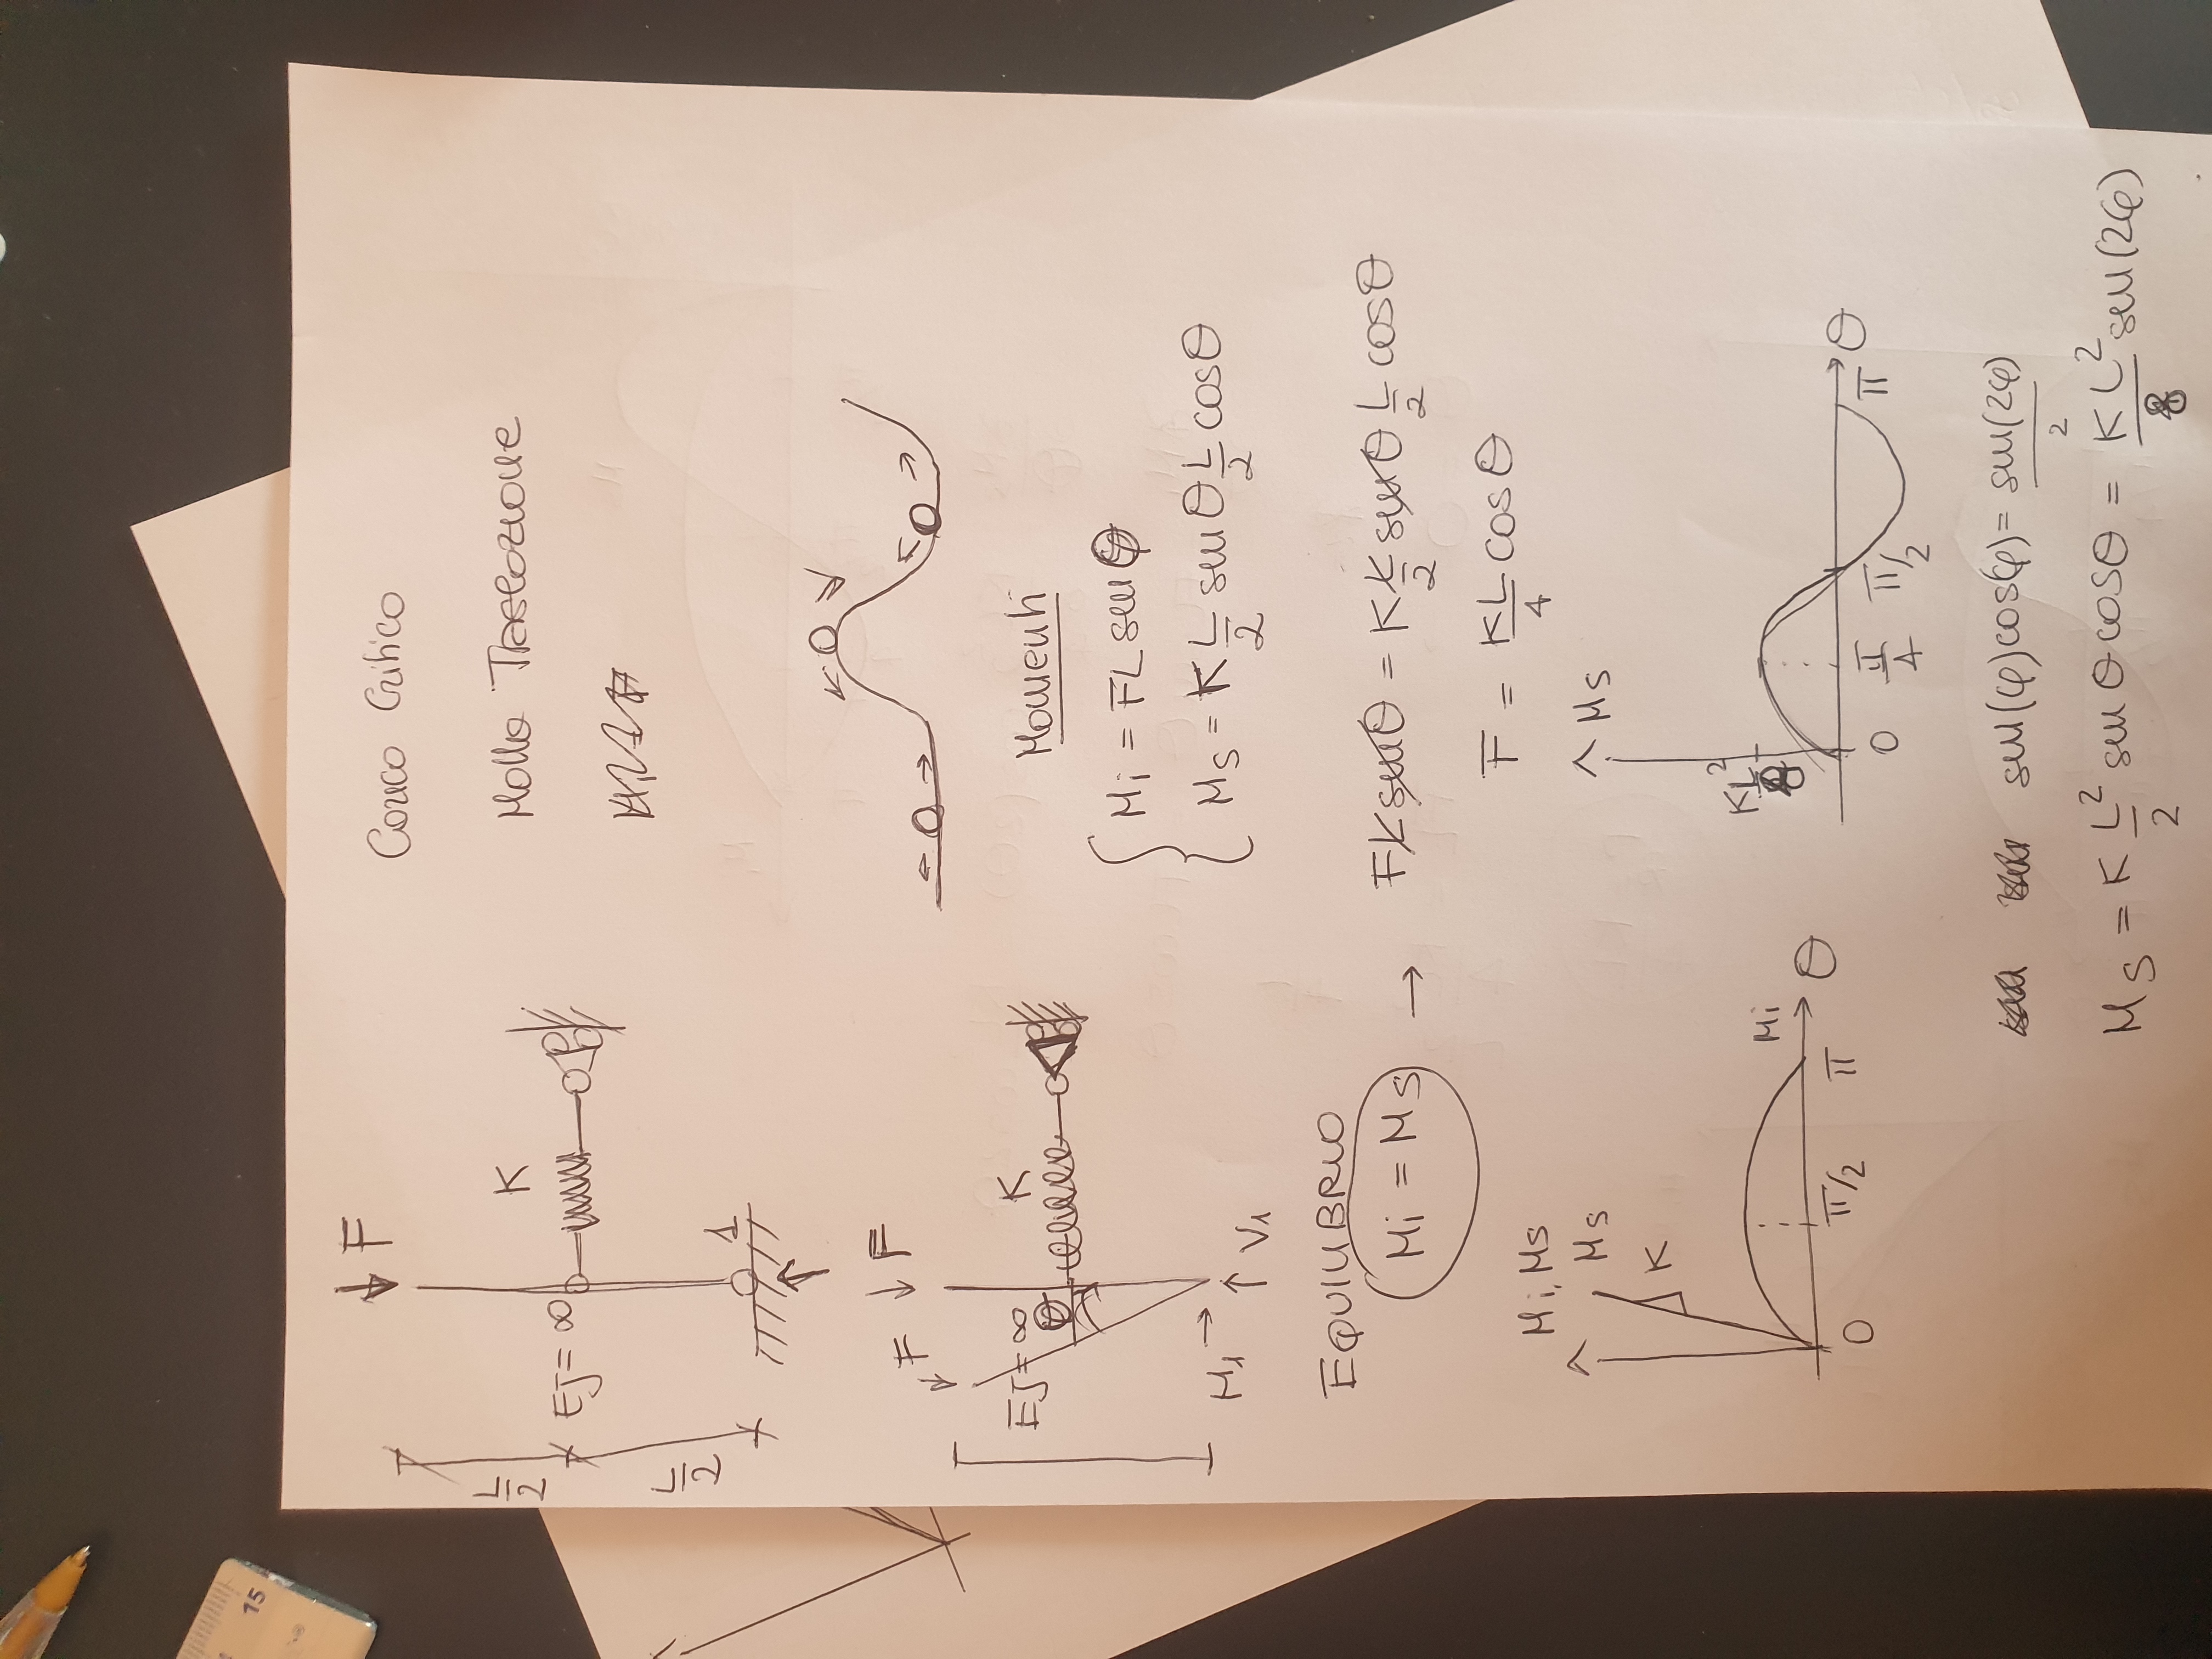 15
F
Carico Critico
L/2
K
Molla Traslazione
EJ = ∞
L/2
1
F
F
EJ = ∞
K
θ
Momenti
Mi = FL sen φ
Ms = K L/2 sen θ L/2 cos θ
M1
V1
EQUILIBRIO
Mi = Ms → FL sen θ = K L/2 sen θ L/2 cos θ
F = KL/4 cos θ
Mi, Ms
Ms
K
Mi
θ
0
π/2
π
Ms
KL²/8
θ
0
π/4
π/2
π
sen(φ)cos(φ) = sen(2φ)/2
Ms = K L²/2 sen θ cos θ = KL²/8 sen(2φ)